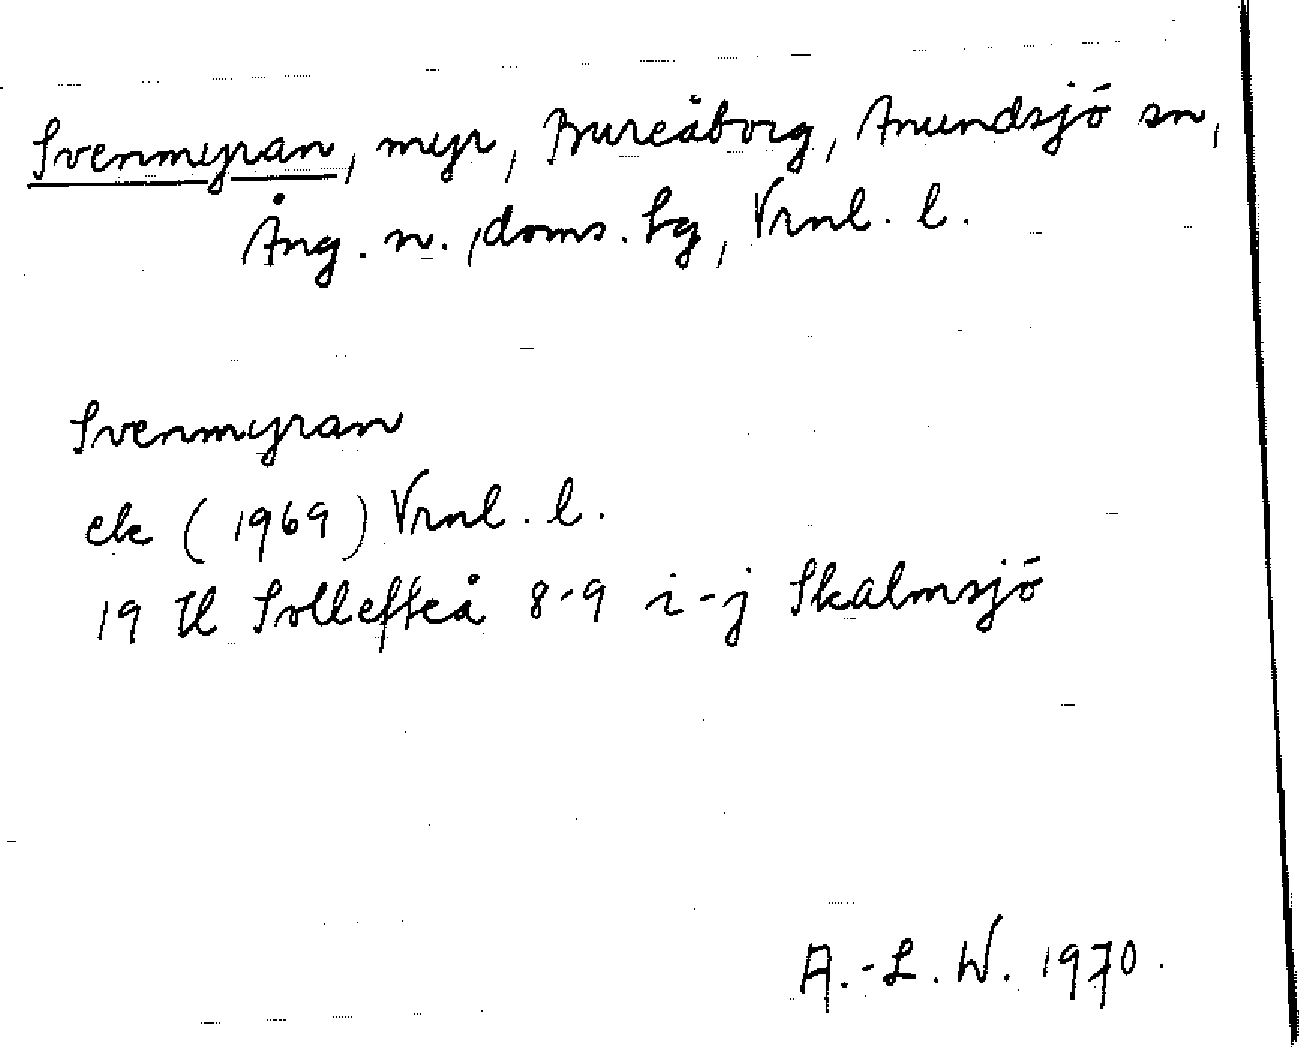 Svenmyran, myr, Bureåborg, Anundsjö sn,
Ång. n., doms. hg, Vrnl. l.
Svenmyran
ek (1969) Vrnl. l.
19 H Sollefteå 8-9 i-j Skalmsjö
A.-L. W. 1970.